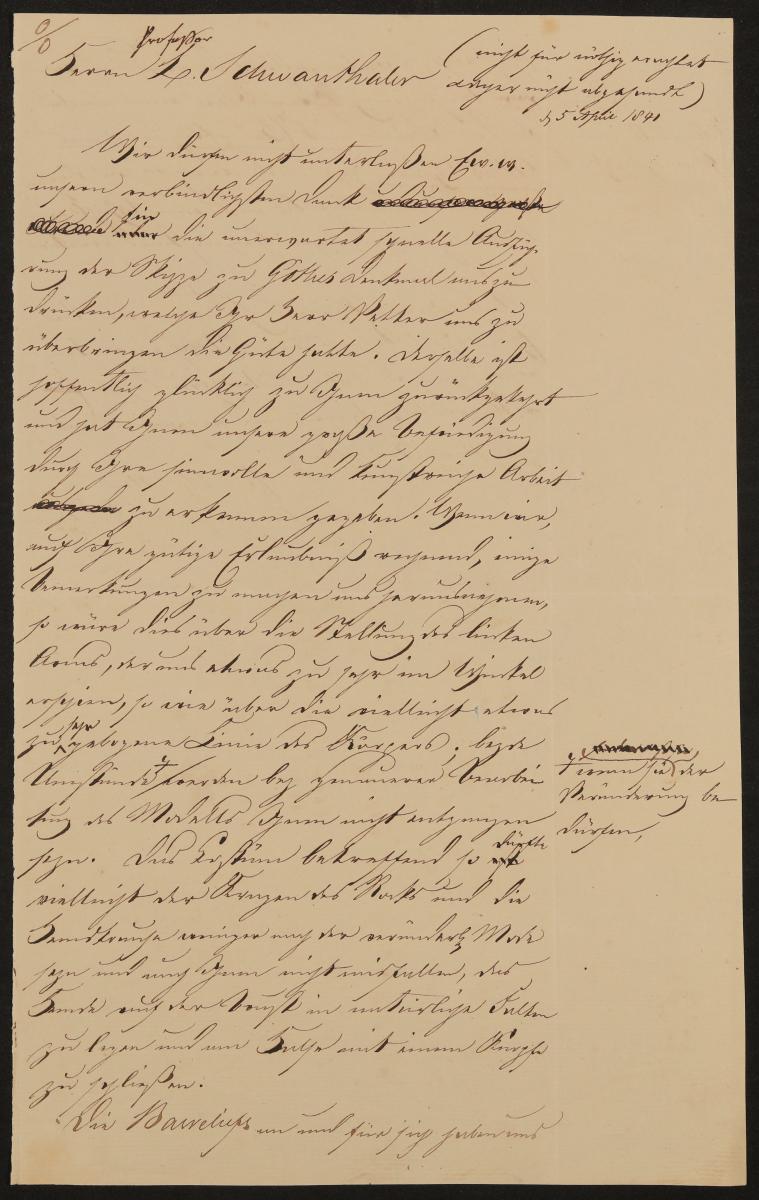 Professor
Herrn L. Schwanthaler
(nicht für nöthig erachtet
daher nicht abgesandt)
d 5 April 1841
Wir dürfen nicht unterlaßen Ew. W.
unsern verbindlichsten Dank
für die unerwartet schnelle Ausfüh-
rung der Skizze zu Göthes Denkmal auszu
drücken, welche Ihr Herr Vetter uns zu
überbringen die Güte hatte. Derselbe ist
hoffentlich glücklich zu Ihnen zurückgekehrt
und hat Ihnen unsere große Befriedigung
durch Ihre sinnvolle und kunstreiche Arbeit
zu erkennen gegeben. Wenn wir,
auf Ihre gütige Erlaubniß rechnend, einige
Bemerkungen zu machen uns herausnehmen,
so wäre dies über die Stellung des linken
Arms, der uns etwas zu sehr im Winkel
erschien, so wie über die vielleicht etwas
zu sehr gebogene Linie des Körpers, beyde
Umstände werden bey genauerer Bearbei
tung des Modells Ihnen nicht entgangen
seyn. Das Costüm betreffend so dürfte
vielleicht der Kragen des Rocks und die
Handkrause weniger nach der veränderl Mode
seyn und auch Ihnen nicht misfallen, das
Hemde auf der Brust in natürliche Falten
zu legen und am Halse mit einem Knopfe
zu schließen.
Die Basreliefs an und für sich haben uns
wenn sie der
Veränderung be
dürfen,